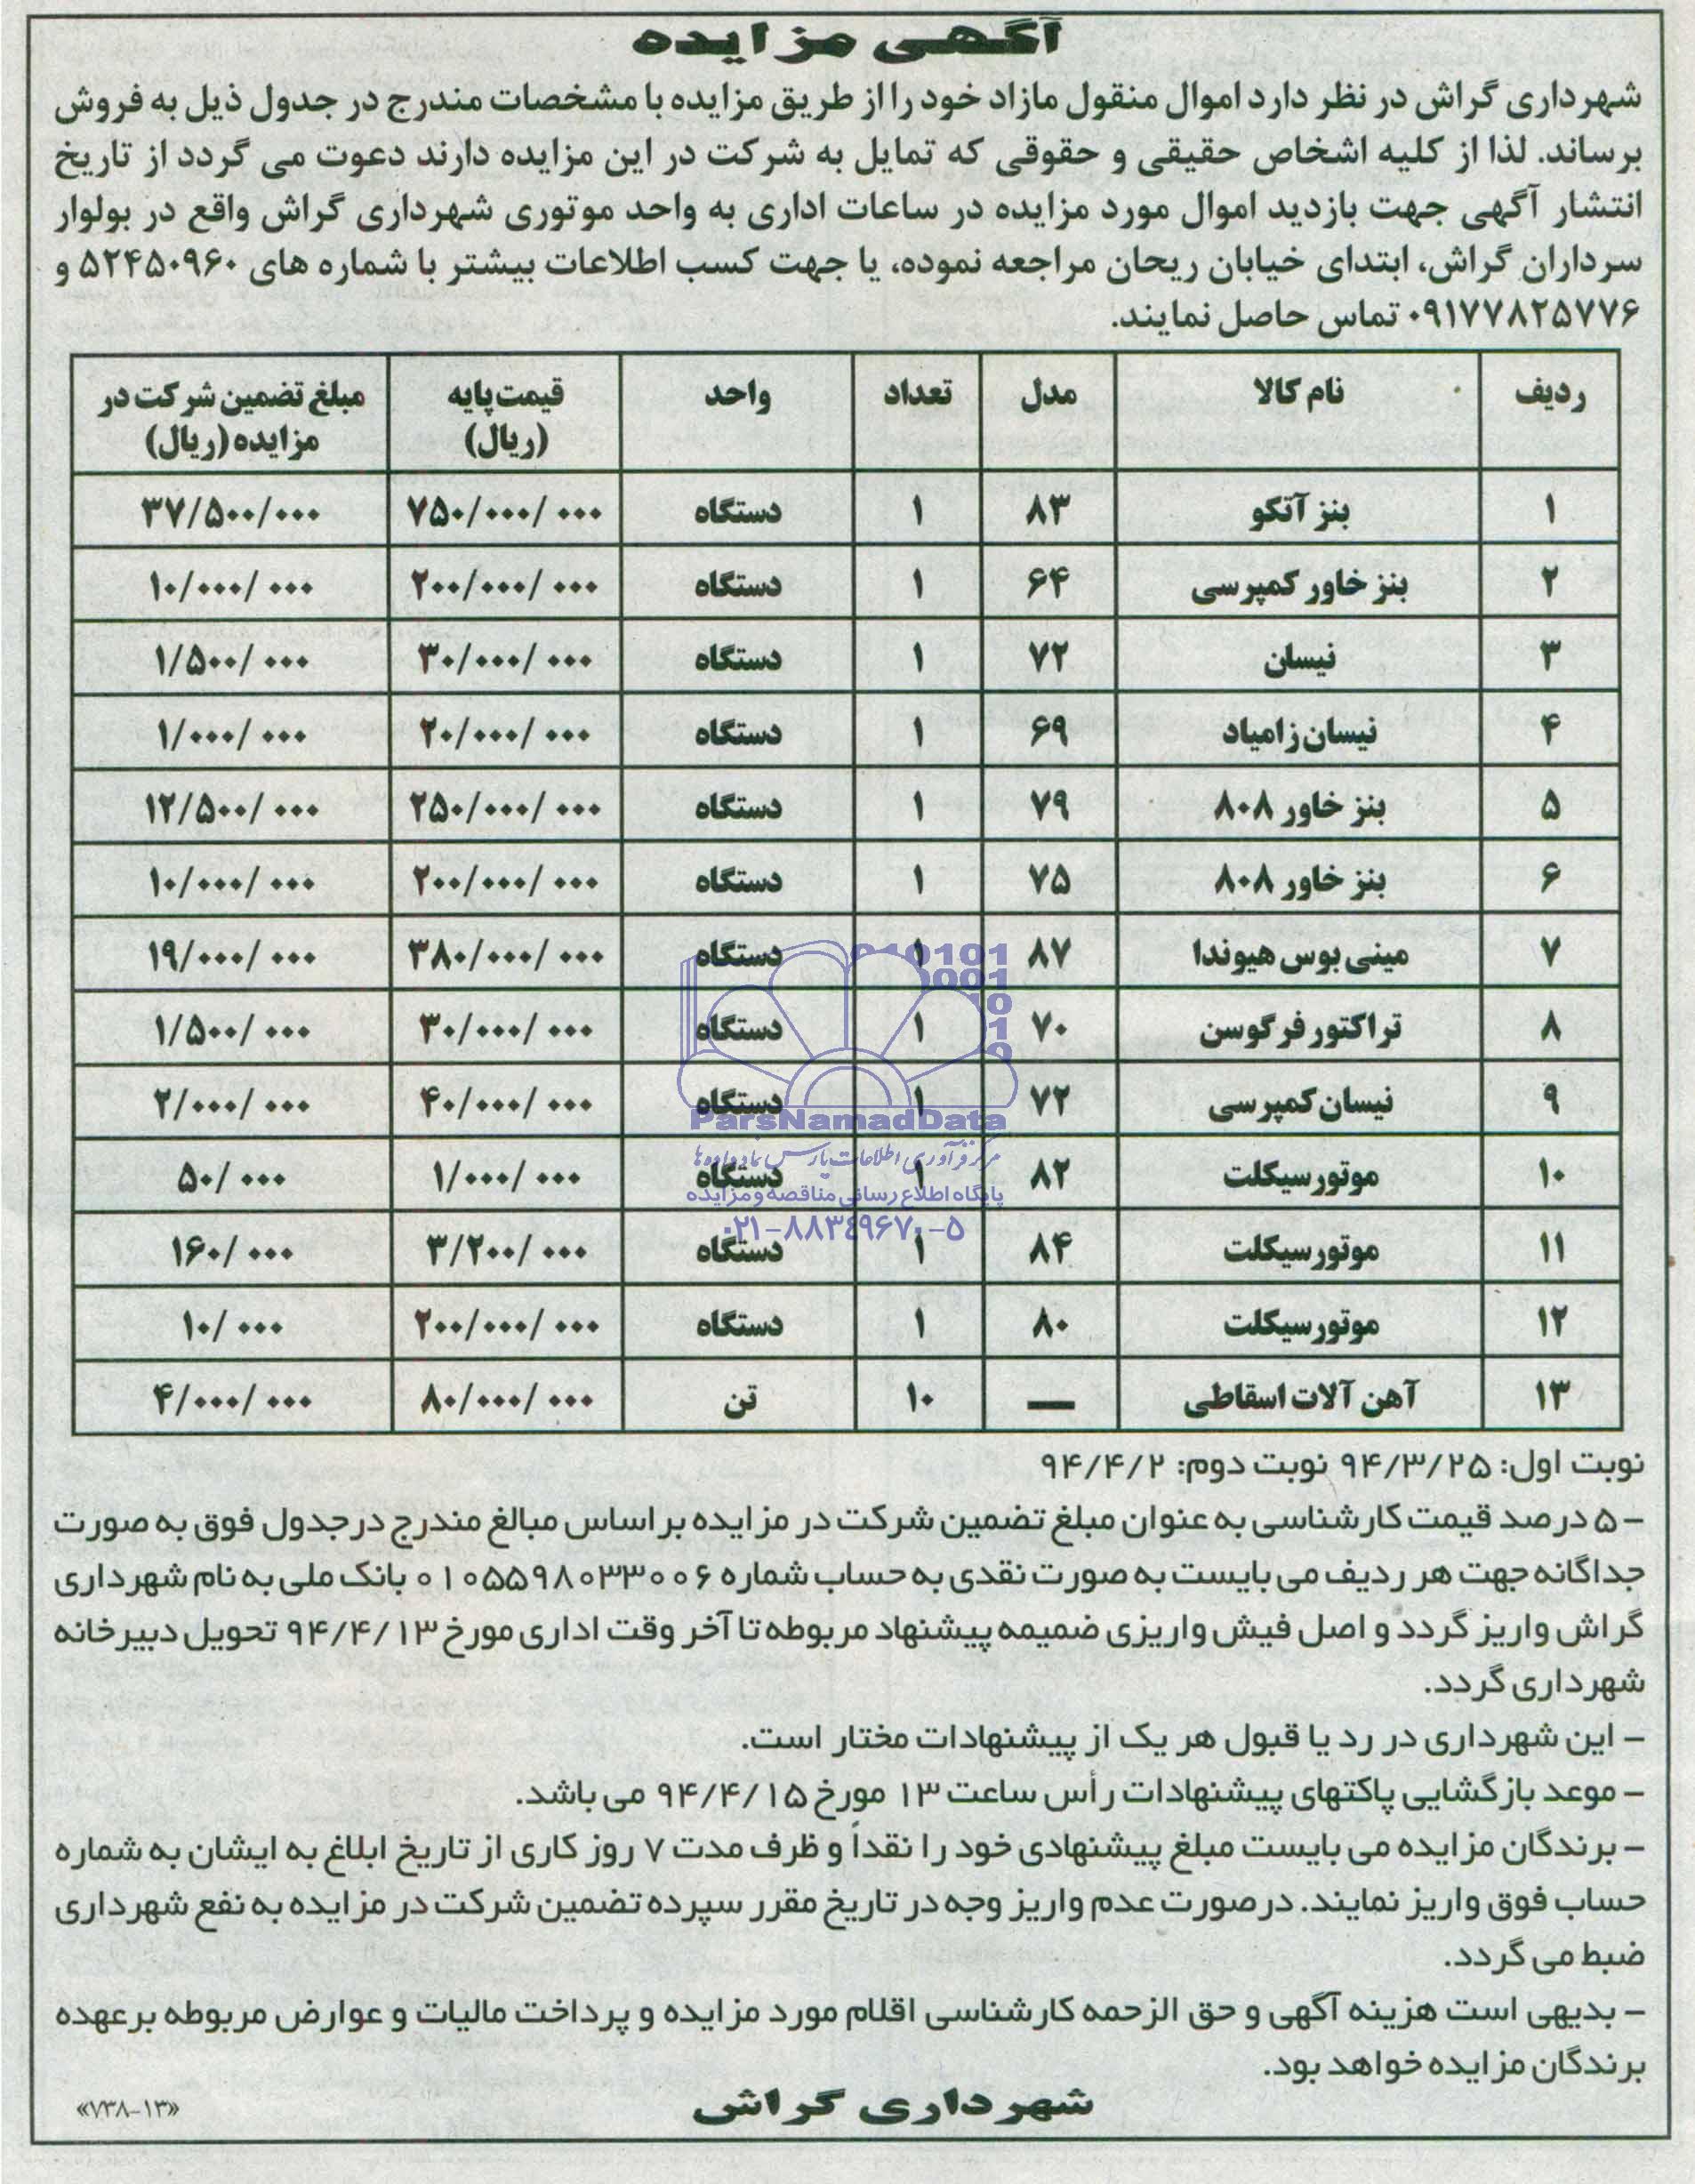 آگهی مزایده
شهرداری گراش در نظر دارد اموال منقول مازاد خود را از طریق مزایده با مشخصات مندرج در جدول ذیل به فروش
برساند. لذا از کلیه اشخاص حقیقی و حقوقی که تمایل به شرکت در این مزایده دارند دعوت می گردد از تاریخ
انتشار آگهی جهت بازدید اموال مورد مزایده در ساعات اداری به واحد موتوری شهرداری گراش واقع در بولوار
سرداران گراش، ابتدای خیابان ریحان مراجعه نموده، یا جهت کسب اطلاعات بیشتر با شماره های ۵۲۴۵۰۹۶۰ و
۰۹۱۷۷۸۲۵۷۷۶ تماس حاصل نمایند.
ردیف نام کالا مدل تعداد واحد قیمت پایه (ریال) مبلغ تضمین شرکت در مزایده (ریال)
۱ بنز آتکو ۸۳ ۱ دستگاه ۷۵۰/۰۰۰/۰۰۰ ۳۷/۵۰۰/۰۰۰
۲ بنز خاور کمپرسی ۶۴ ۱ دستگاه ۲۰۰/۰۰۰/۰۰۰ ۱۰/۰۰۰/۰۰۰
۳ نیسان ۷۲ ۱ دستگاه ۳۰/۰۰۰/۰۰۰ ۱/۵۰۰/۰۰۰
۴ نیسان زامیاد ۶۹ ۱ دستگاه ۲۰/۰۰۰/۰۰۰ ۱/۰۰۰/۰۰۰
۵ بنز خاور ۸۰۸ ۷۹ ۱ دستگاه ۲۵۰/۰۰۰/۰۰۰ ۱۲/۵۰۰/۰۰۰
۶ بنز خاور ۸۰۸ ۷۵ ۱ دستگاه ۲۰۰/۰۰۰/۰۰۰ ۱۰/۰۰۰/۰۰۰
۷ مینی بوس هیوندا ۸۷ ۱ دستگاه ۳۸۰/۰۰۰/۰۰۰ ۱۹/۰۰۰/۰۰۰
۸ تراکتور فرگوسن ۷۰ ۱ دستگاه ۳۰/۰۰۰/۰۰۰ ۱/۵۰۰/۰۰۰
۹ نیسان کمپرسی ۷۲ ۱ دستگاه ۴۰/۰۰۰/۰۰۰ ۲/۰۰۰/۰۰۰
۱۰ موتورسیکلت ۸۲ ۱ دستگاه ۱/۰۰۰/۰۰۰ ۵۰/۰۰۰
۱۱ موتورسیکلت ۸۴ ۱ دستگاه ۳/۲۰۰/۰۰۰ ۱۶۰/۰۰۰
۱۲ موتورسیکلت ۸۰ ۱ دستگاه ۲۰۰/۰۰۰/۰۰۰ ۱۰/۰۰۰
۱۳ آهن آلات اسقاطی — ۱۰ تن ۸۰/۰۰۰/۰۰۰ ۴/۰۰۰/۰۰۰
ParsNamadData
مرکز فرآوری اطلاعات پارس نماد داده ها
پایگاه اطلاع رسانی مناقصه و مزایده
۰۲۱-۸۸۳۴۹۶۷۰-۵
نوبت اول: ۹۴/۳/۲۵ نوبت دوم: ۹۴/۴/۲
- ۵ درصد قیمت کارشناسی به عنوان مبلغ تضمین شرکت در مزایده براساس مبالغ مندرج در جدول فوق به صورت
جداگانه جهت هر ردیف می بایست به صورت نقدی به حساب شماره ۰۱۰۵۵۹۸۰۳۳۰۰۶ بانک ملی به نام شهرداری
گراش واریز گردد و اصل فیش واریزی ضمیمه پیشنهاد مربوطه تا آخر وقت اداری مورخ ۹۴/۴/۱۳ تحویل دبیرخانه
شهرداری گردد.
- این شهرداری در رد یا قبول هر یک از پیشنهادات مختار است.
- موعد بازگشایی پاکتهای پیشنهادات رأس ساعت ۱۳ مورخ ۹۴/۴/۱۵ می باشد.
- برندگان مزایده می بایست مبلغ پیشنهادی خود را نقداً و ظرف مدت ۷ روز کاری از تاریخ ابلاغ به ایشان به شماره
حساب فوق واریز نمایند. در صورت عدم واریز وجه در تاریخ مقرر سپرده تضمین شرکت در مزایده به نفع شهرداری
ضبط می گردد.
- بدیهی است هزینه آگهی و حق الزحمه کارشناسی اقلام مورد مزایده و پرداخت مالیات و عوارض مربوطه برعهده
برندگان مزایده خواهد بود.
شهرداری گراش
«۷۳۸-۱۳»